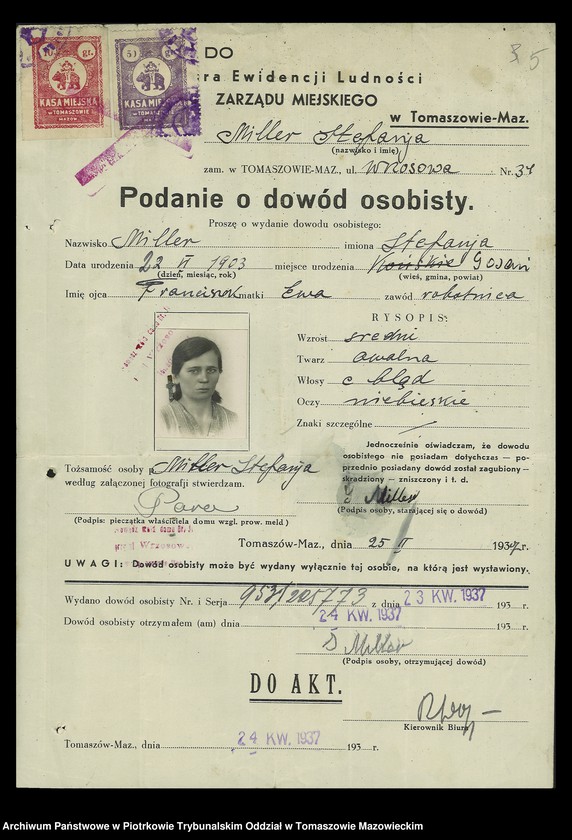 3 5
10 gr.
KASA MIEJSKA
w TOMASZOWIE
MAZOW.
50 gr.
KASA MIEJSKA
w TOMASZOWIE
DO
ra Ewidencji Ludności
ZARZĄDU MIEJSKIEGO
w Tomaszowie-Maz.
Miller Stefanja
(nazwisko i imię)
zam. w TOMASZOWIE-MAZ., ul. Wrzosowa Nr. 34
Podanie o dowód osobisty.
Proszę o wydanie dowodu osobistego:
Nazwisko Miller imiona Stefanja
Data urodzenia 22 VI 1903 miejsce urodzenia
(dzień, miesiąc, rok) (wieś, gmina, powiat)
Imię ojca Franciszek matki Ewa zawód robotnica
RYSOPIS:
Wzrost średni
Twarz owalna
Włosy c bląd
Oczy niebieskie
Znaki szczególne
Jednocześnie oświadczam, że dowodu
osobistego nie posiadam dotychczas — po-
przednio posiadany dowód został zagubiony –
skradziony – zniszczony i t. d.
Tożsamość osoby p. Miller Stefanja
według załączonej fotografii stwierdzam.
S Miller
(Podpis: pieczątka właściciela domu wzgl. prow. meld.) (Podpis osoby, starającej się o dowód)
Tomaszów-Maz., dnia 25 II 1937 r.
UWAGI: Dowód osobisty może być wydany wyłącznie tej osobie, na którą jest wystawiony.
Wydano dowód osobisty Nr. i Serja 953/225773 z dnia 23 KW. 1937 193 r.
Dowód osobisty otrzymałem (am) dnia 24 KW. 1937 193 r.
S Miller
(Podpis osoby, otrzymującej dowód)
DO AKT.
Kierownik Biura
Tomaszów-Maz., dnia 24 KW. 1937 193 r.
Archiwum Państwowe w Piotrkowie Trybunalskim Oddział w Tomaszowie Mazowieckim